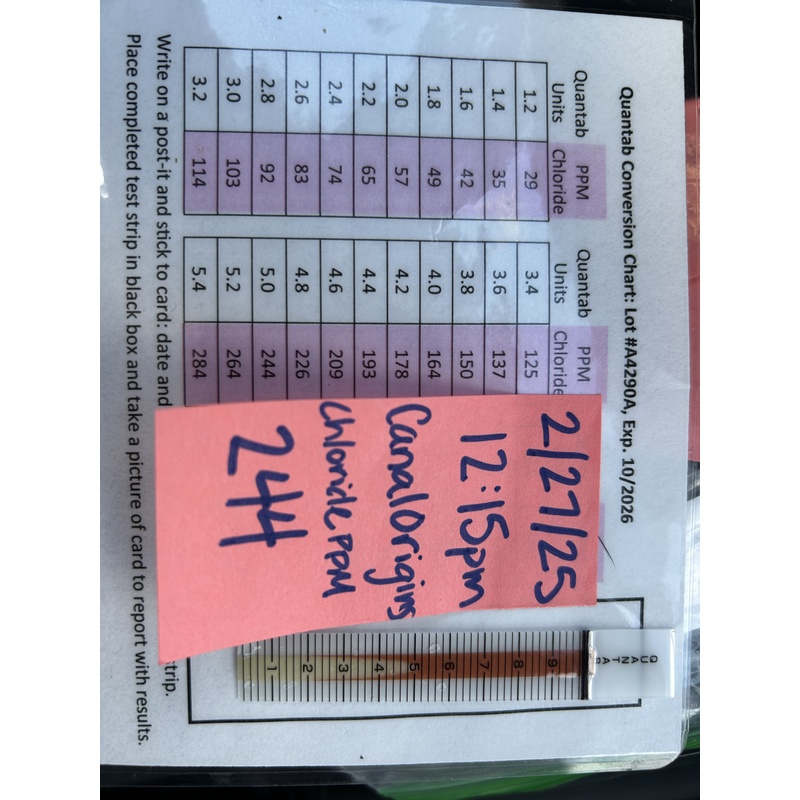 Quantab Conversion Chart: Lot #A4290A, Exp. 10/2026
Quantab Units PPM Chloride Quantab Units PPM Chloride
1.2 29 3.4 125
1.4 35 3.6 137
1.6 42 3.8 150
1.8 49 4.0 164
2.0 57 4.2 178
2.2 65 4.4 193
2.4 74 4.6 209
2.6 83 4.8 226
2.8 92 5.0 244
3.0 103 5.2 264
3.2 114 5.4 284
Write on a post-it and stick to card: date and
trip.
Place completed test strip in black box and take a picture of card to report with results.
2/27/25
12:15pm
Canal Origins
Chloride PPM
244
QUANTAB
9
8
7
6
5
4
3
2
1